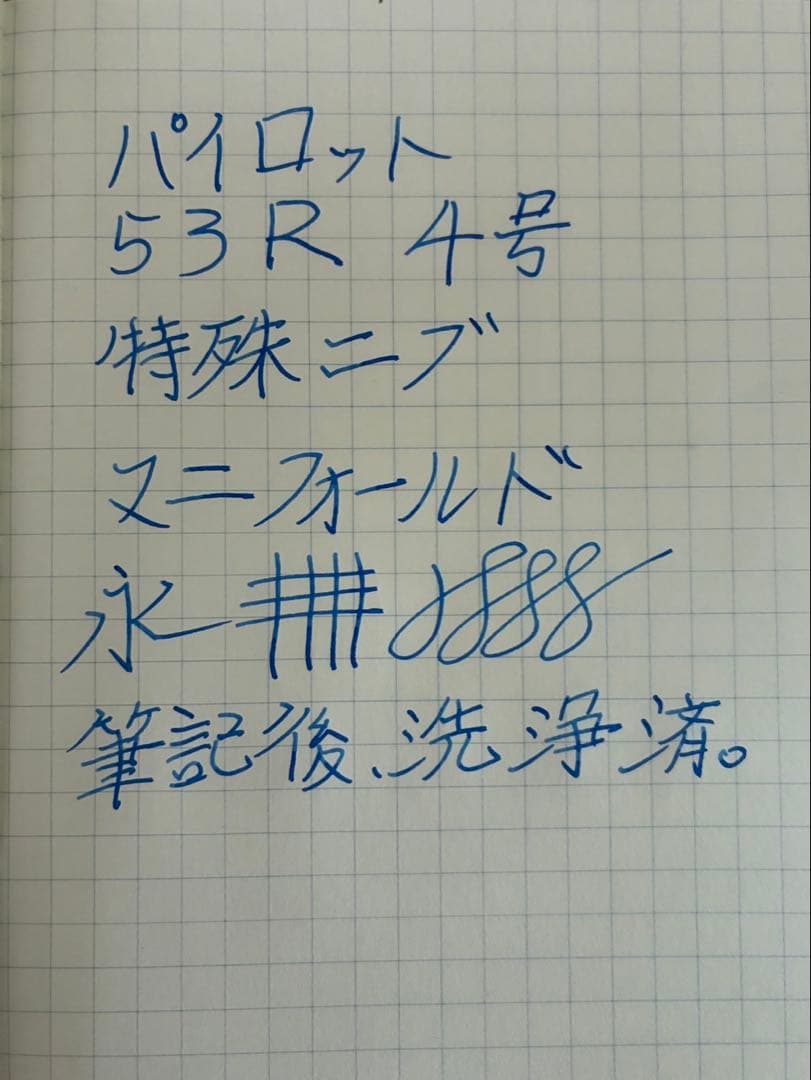 パイロット
53R 4号
特殊ニブ
マニフォールド
永
筆記後、洗浄済。